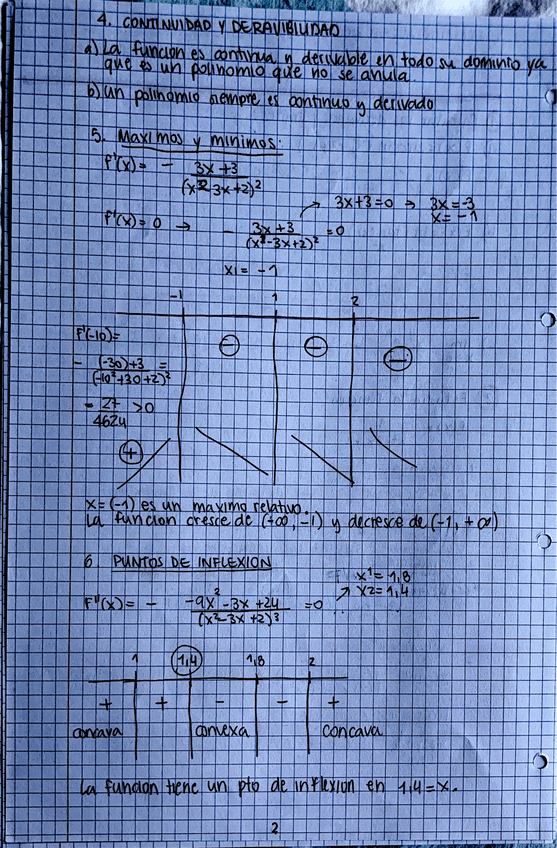 4. CONTINVIDAD Y DERAVIBILIDAD
a) La funcion es continua y derivable en todo su dominio ya
que es un polinomio que no se anula.
b) un polinomio siempre es continuo y derivado
5. Maximos y minimos:
f'(x) = - 3x+3 / (x²-3x+2)²
f'(x) = 0 → - 3x+3 / (x²-3x+2)² = 0 → 3x+3=0 → 3x=-3
x=-1
x1 = -1
-1 1 2
f'(-10)=
- (-30)+3 / (-10²+30+2)² =
- 27 / 4624 >0
+ - - -
x=(-1) es un maximo relativo.
La funcion cresce de (+∞, -1) y decresce de (-1, +∞)
6. PUNTOS DE INFLEXION
f''(x) = - -9x²-3x+24 / (x²-3x+2)³ =0 ↗ x1=1,8
x2=1,4
1 1,4 1,8 2
+ + - - +
concava convexa concava
La funcion tiene un pto de inflexion en 1,4=x.
2